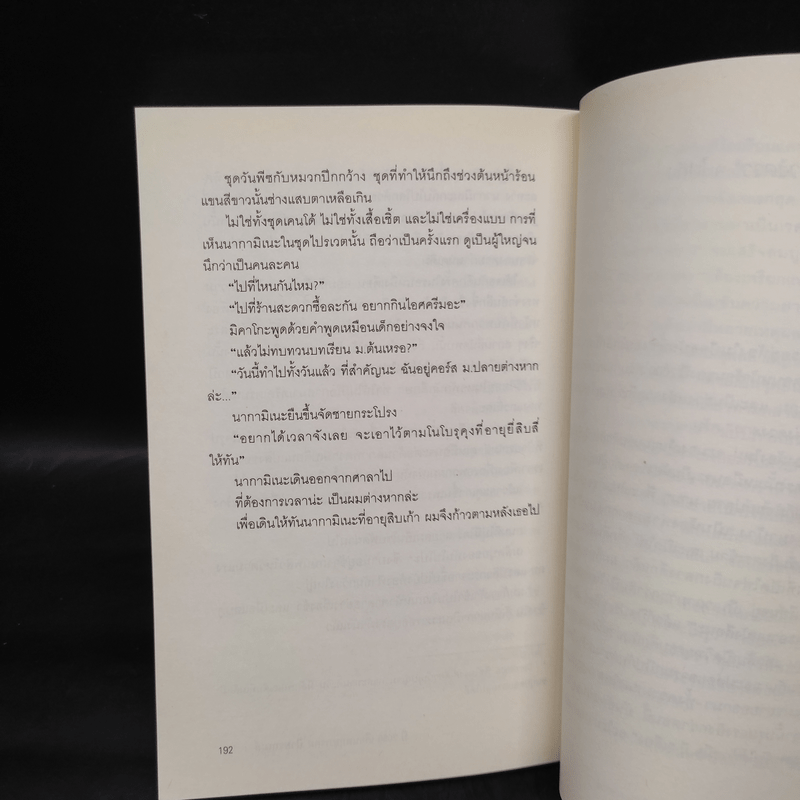 ชุดวันพีซกับหมวกปีกกว้าง ชุดที่ทำให้นึกถึงช่วงต้นหน้าร้อน
แขนสีขาวนั้นช่างแสบตาเหลือเกิน
ไม่ใช่ทั้งชุดเคนโด้ ไม่ใช่ทั้งเสื้อเชิ้ต และไม่ใช่เครื่องแบบ การที่
เห็นนากามิเนะในชุดไปรเวตนั้น ถือว่าเป็นครั้งแรก ดูเป็นผู้ใหญ่จน
นึกว่าเป็นคนละคน
“ไปที่ไหนกันไหม?”
“ไปที่ร้านสะดวกซื้อละกัน อยากกินไอศครีมอะ”
มิคาโกะพูดด้วยคำพูดเหมือนเด็กอย่างจงใจ
“แล้วไม่ทบทวนบทเรียน ม.ต้นเหรอ?”
“วันนี้ทำไปทั้งวันแล้ว ที่สำคัญนะ ฉันอยู่คอร์ส ม.ปลายต่างหาก
ล่ะ...”
นากามิเนะยืนขึ้นจัดชายกระโปรง
“อยากได้เวลาจังเลย จะเอาไว้ตามโนโบรุคุงที่อายุยี่สิบสี่
ให้ทัน”
นากามิเนะเดินออกจากศาลาไป
ที่ต้องการเวลาน่ะ เป็นผมต่างหากล่ะ
เพื่อเดินให้ทันนากามิเนะที่อายุสิบเก้า ผมจึงก้าวตามหลังเธอไป
192